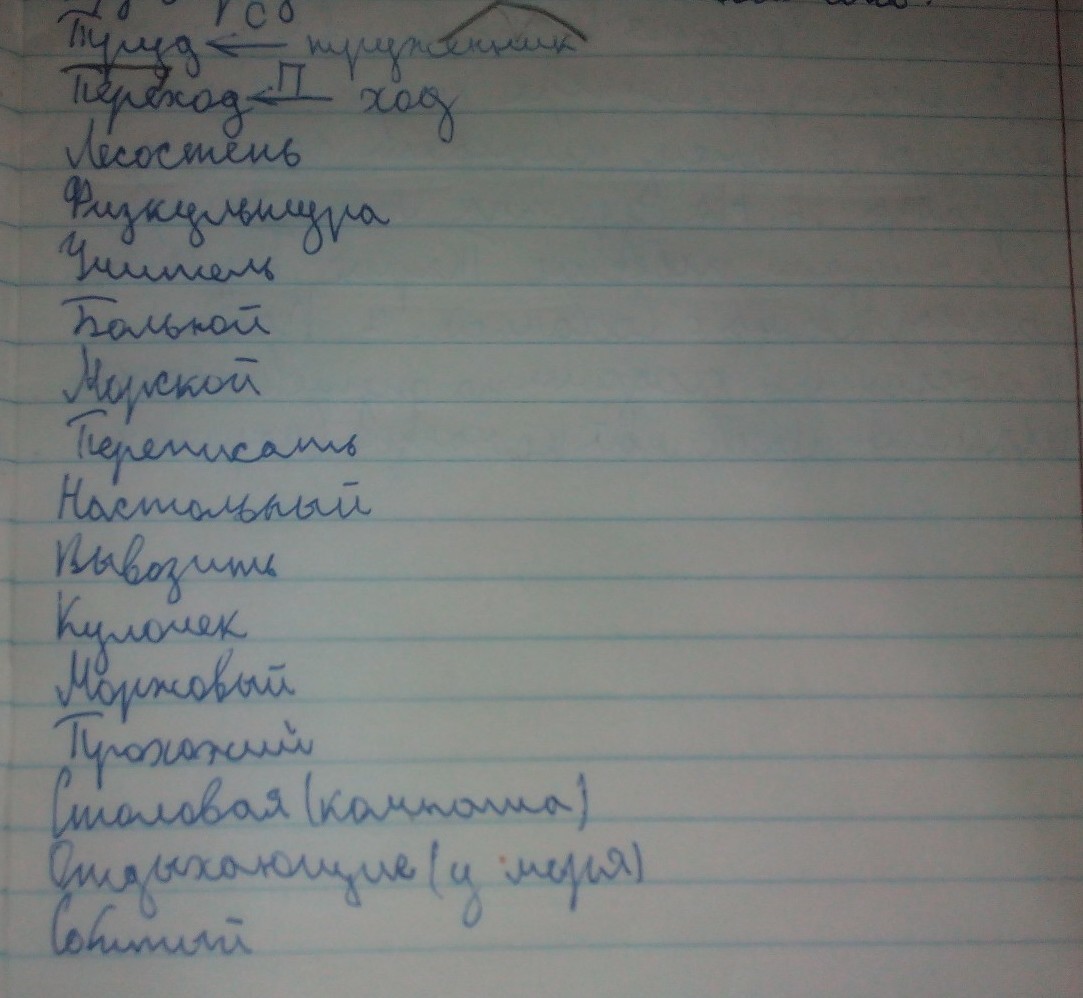 С
Пруд ← пруженник
Переход ← П ход
Лесостепь
Физкультура
Учитель
Больной
Морской
Переписать
Настольный
Вывозить
Кулочек
Моржовый
Прохожий
Столовая (комната)
Отдыхающие (у моря)